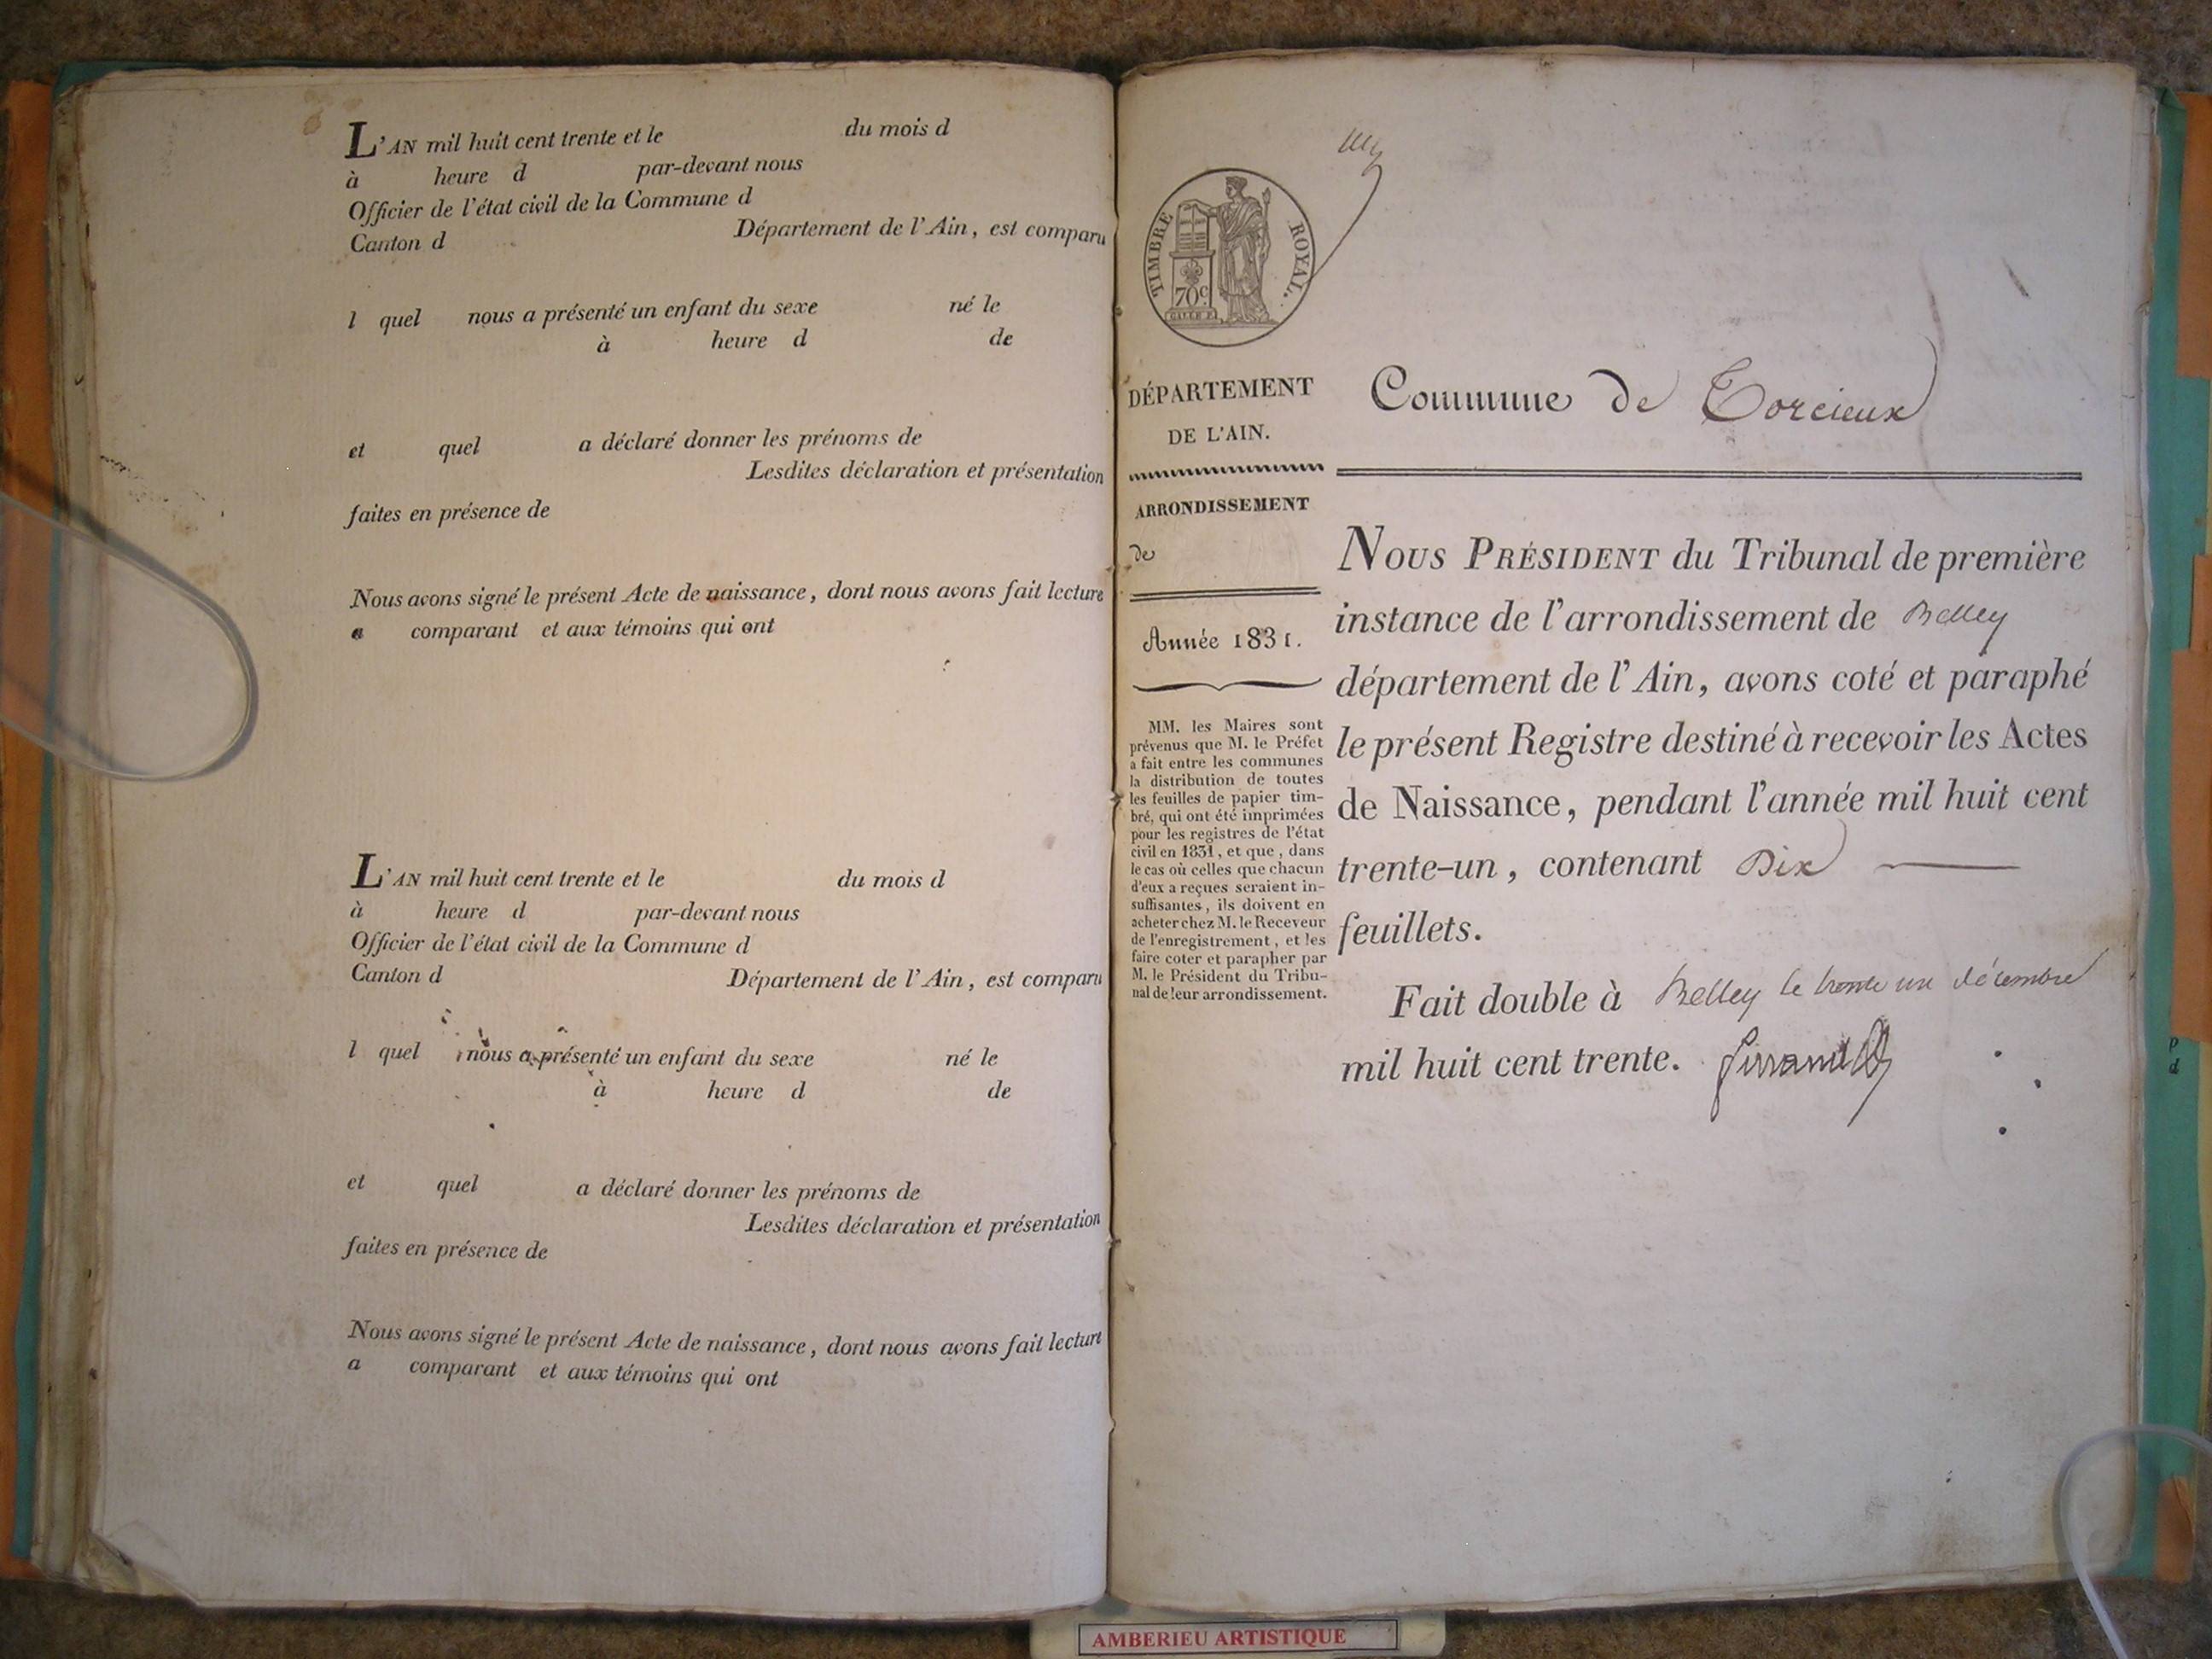 L'AN mil huit cent trente et le du mois d
à heure d par-devant nous
Officier de l'état civil de la Commune d
Canton d Département de l'Ain, est comparu
l quel nous a présenté un enfant du sexe né le
à heure d de
et quel a déclaré donner les prénoms de
Lesdites déclaration et présentation
faites en présence de
Nous avons signé le présent Acte de naissance, dont nous avons fait lecture
a comparant et aux témoins qui ont
L'AN mil huit cent trente et le du mois d
à heure d par-devant nous
Officier de l'état civil de la Commune d
Canton d Département de l'Ain, est comparu
l quel nous a présenté un enfant du sexe né le
à heure d de
et quel a déclaré donner les prénoms de
Lesdites déclaration et présentation
faites en présence de
Nous avons signé le présent Acte de naissance, dont nous avons fait lecture
a comparant et aux témoins qui ont
TIMBRE ROYAL.
70c
DÉPARTEMENT
DE L'AIN.
ARRONDISSEMENT
de
Année 1831.
MM. les Maires sont
prévenus que M. le Préfet
a fait entre les communes
la distribution de toutes
les feuilles de papier tim-
bré, qui ont été imprimées
pour les registres de l'état
civil en 1831, et que, dans
le cas où celles que chacun
d'eux a reçues seraient in-
suffisantes, ils doivent en
acheter chez M. le Receveur
de l'enregistrement, et les
faire coter et parapher par
M. le Président du Tribu-
nal de leur arrondissement.
Commune de Torcieux
NOUS PRÉSIDENT du Tribunal de première
instance de l'arrondissement de Belley
département de l'Ain, avons coté et paraphé
le présent Registre destiné à recevoir les Actes
de Naissance, pendant l'année mil huit cent
trente-un, contenant Dix
feuillets.
Fait double à Belley le trente un décembre
mil huit cent trente.
AMBERIEU ARTISTIQUE